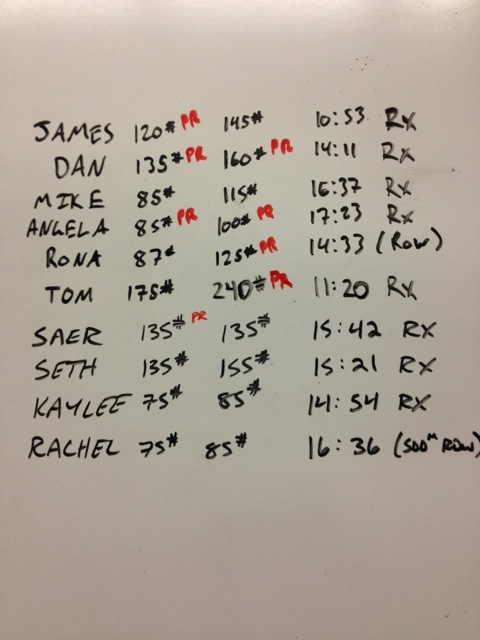 JAMES 120# PR 145# 10:53 Rx
DAN 135# PR 160# PR 14:11 Rx
MIKE 85# 115# 16:37 Rx
ANGELA 85# PR 100# PR 17:23 Rx
RONA 87# 125# PR 14:33 (ROW)
TOM 175# 240# PR 11:20 Rx
SAER 135# PR 135# 15:42 RX
SETH 135# 155# 15:21 RX
KAYLEE 75# 85# 14:54 RX
RACHEL 75# 85# 16:36 (500M ROW)